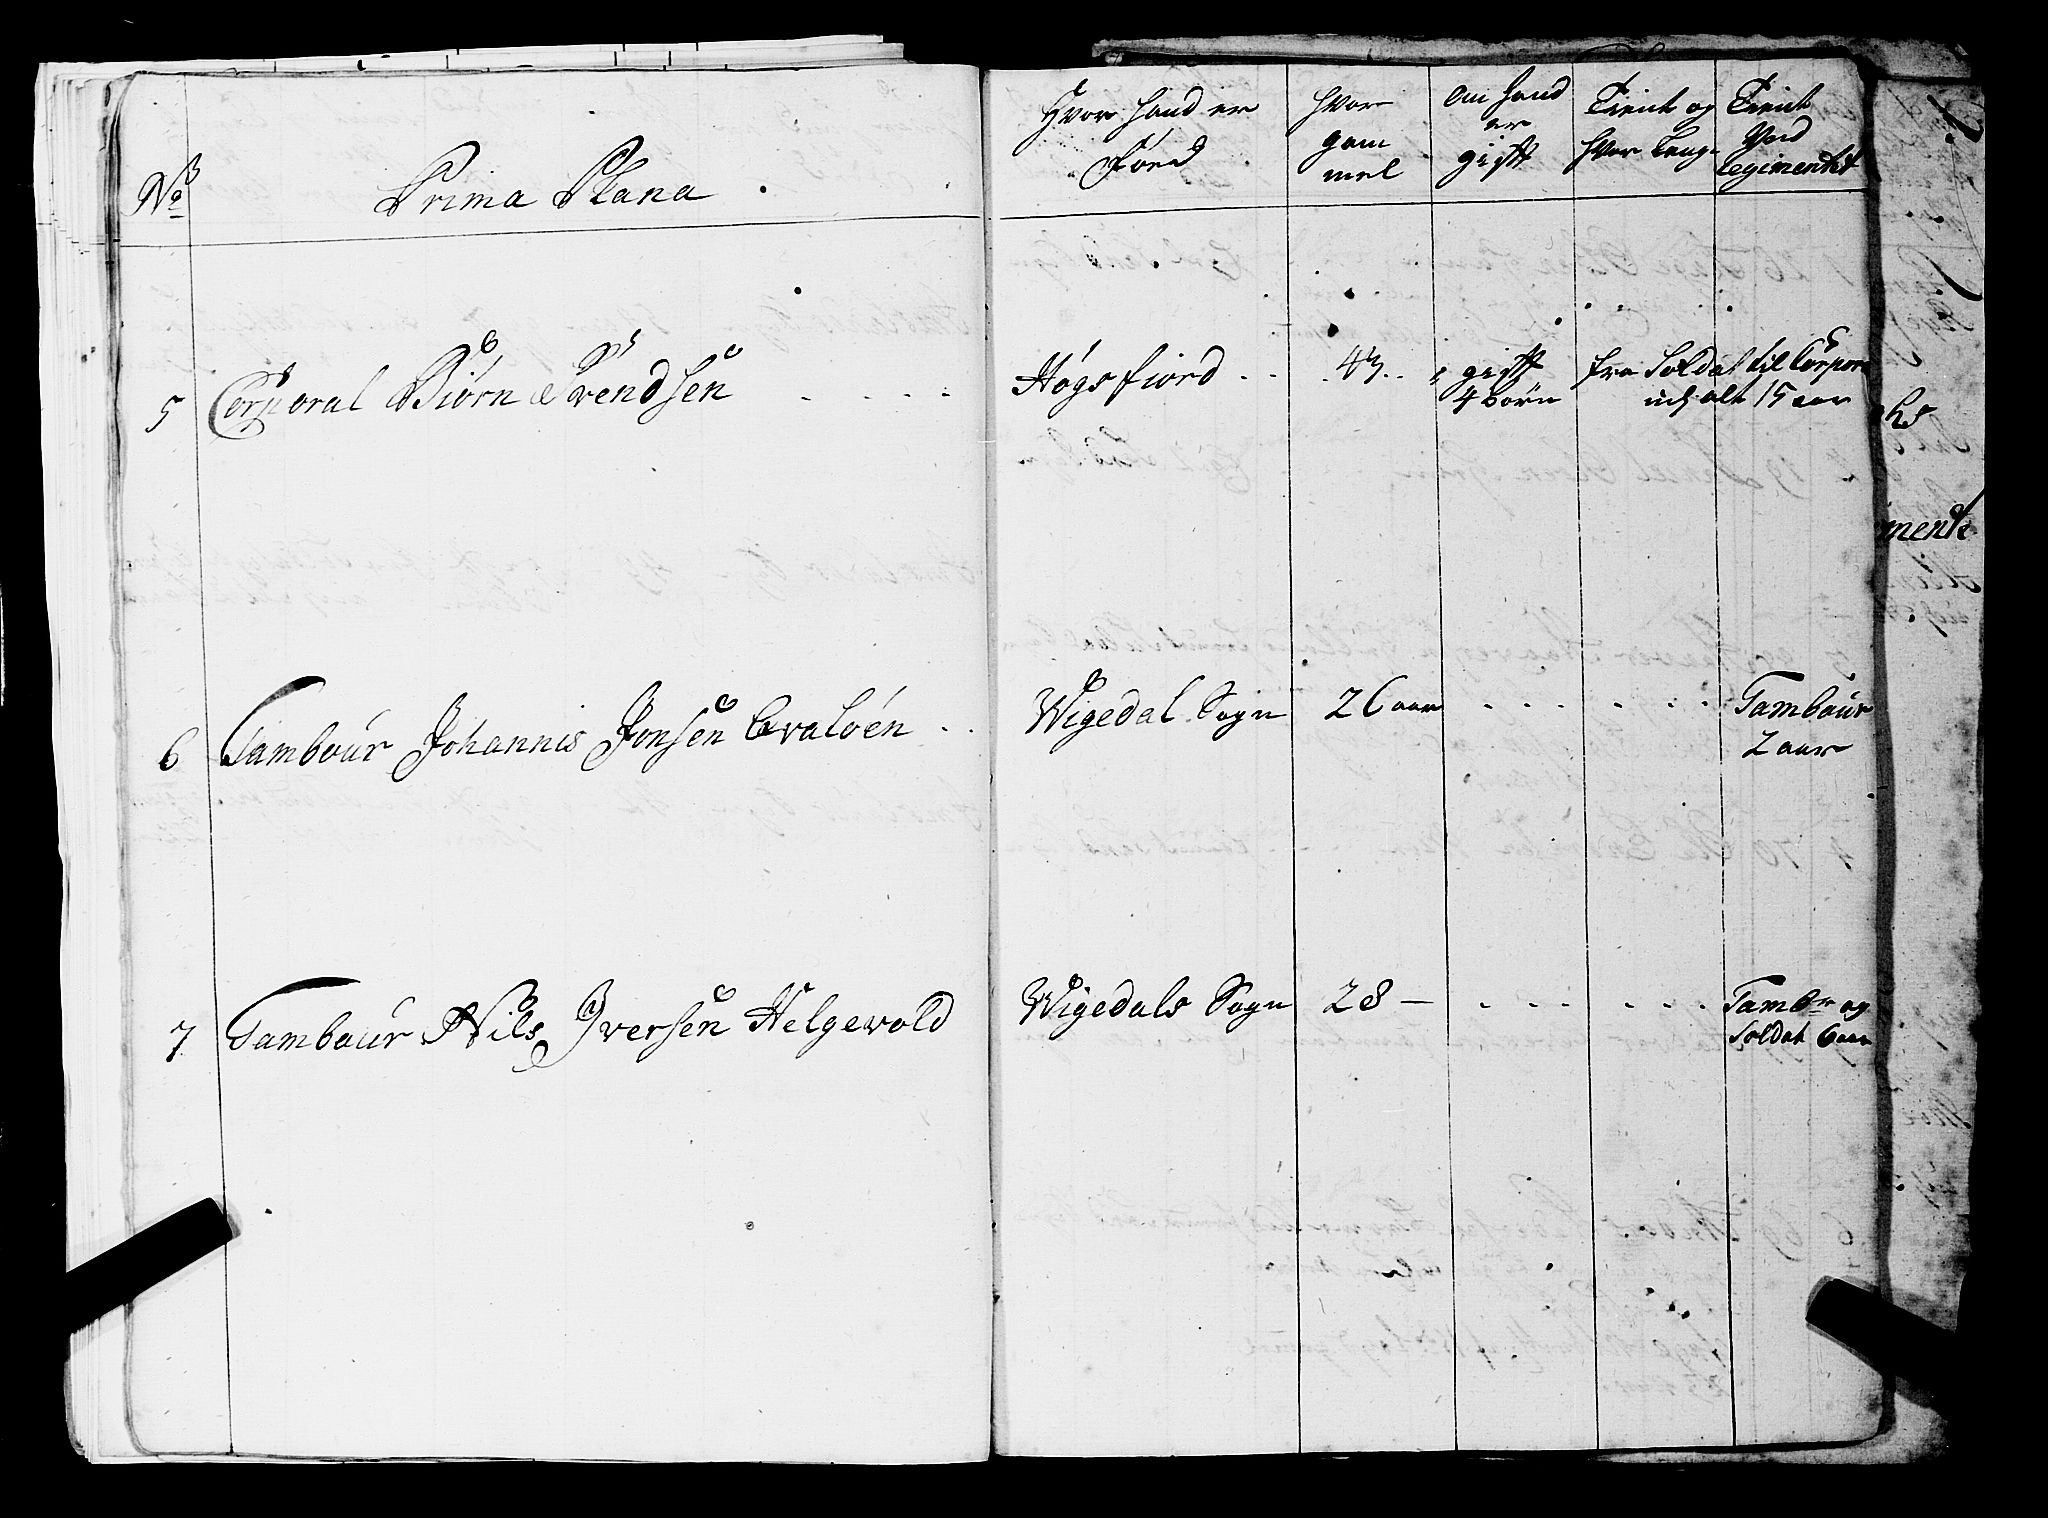 No Prima Plana
Hvor hand er Föed
hvor gammel
Om hand er gift
Tient og hvor leng
Tient Ved Regimentet
5 Corporal Biörn Svendsen
Högsfiord 43 gift fra Soldat til Corpora
4 börn udj alt 15 aar
6 Tambour Johannis Jonsen
Wigedal Sogn 26 aar Tambour
2 aar
7 Tambour Nils Iversen Helgevold
Wigedals Sogn 28 Tambr og
Soldat 6 aar